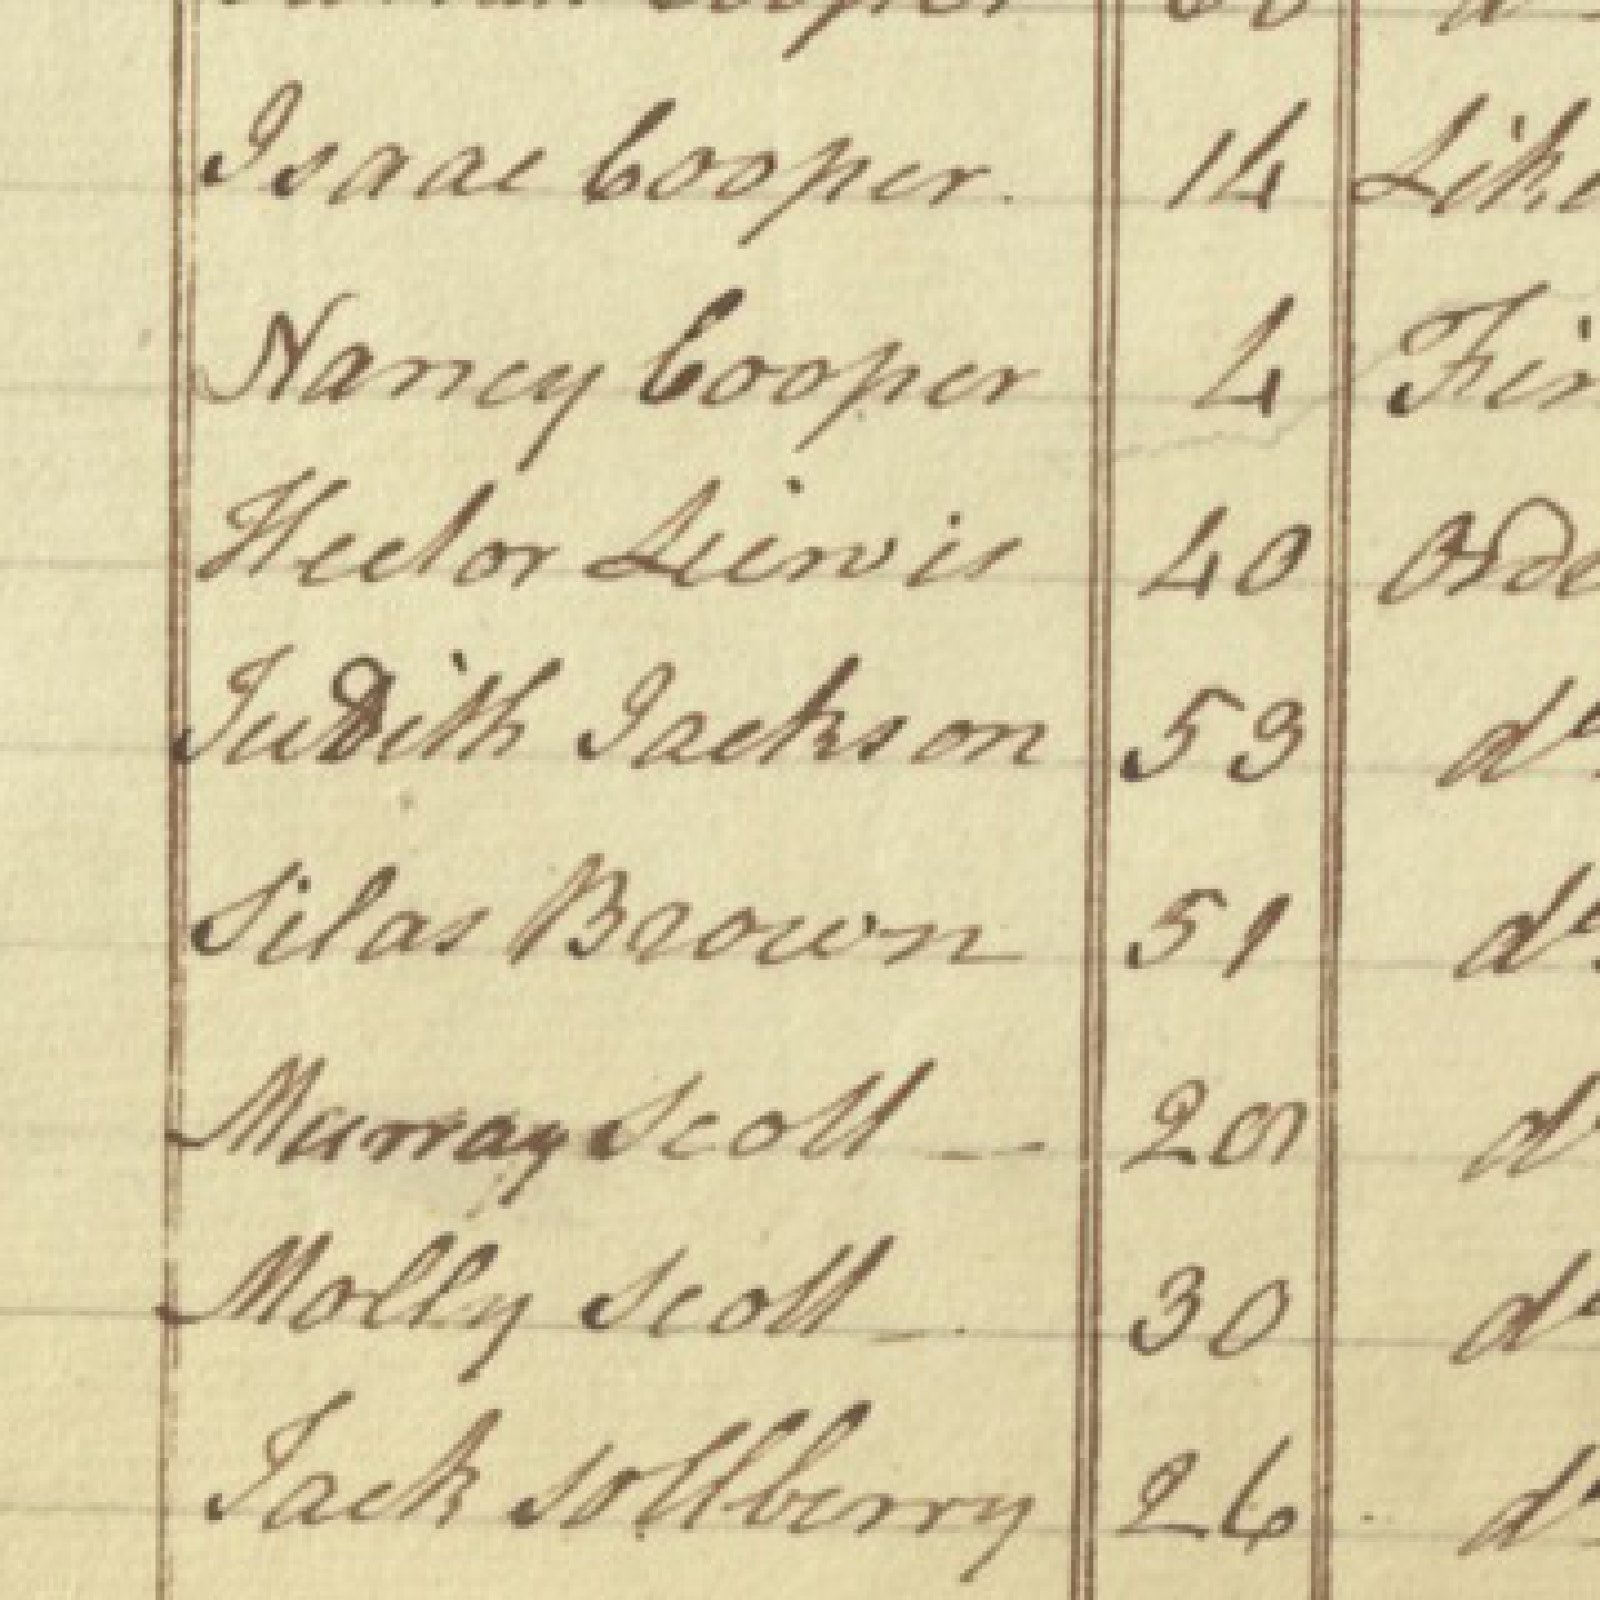 Cooper
Isaac Cooper. 14 Like
Nancy Cooper 4 Fin
Hector Leiwis 40 Orde
Judith Jackson 53 do
Silas Brown 51 do
Murray Scott — do
Molly Scott —. 30 do
Jack Sollberry 26 . do